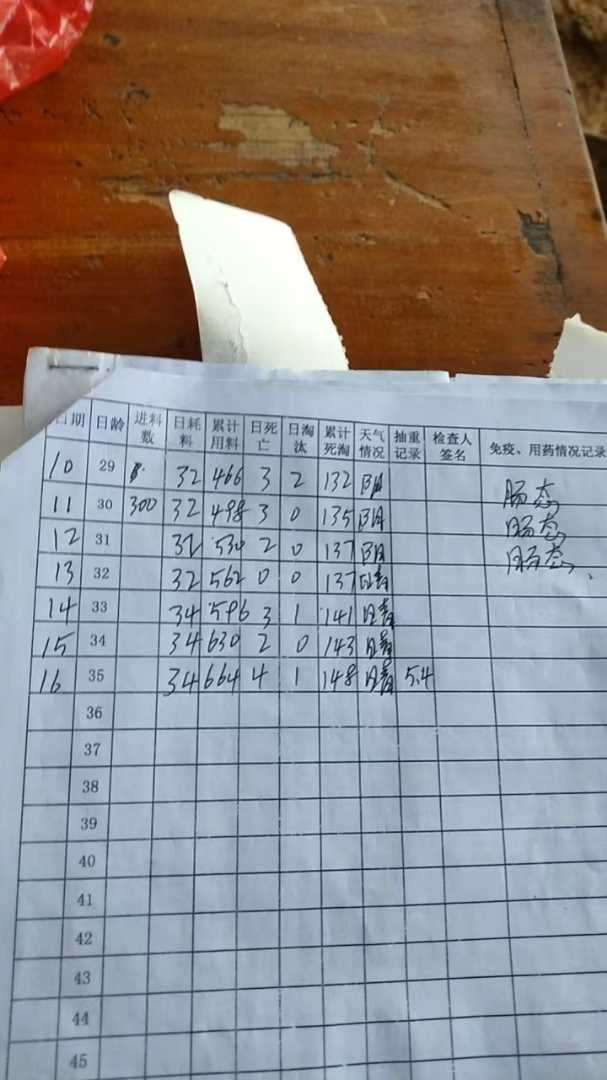 日期 日龄 进料数 日耗料 累计用料 日死亡 日淘汰 累计死淘 天气情况 抽重记录 检查人签名 免疫、用药情况记录
10 29 32 466 3 2 132 阴 肠态
11 30 300 32 498 3 0 135 阴 肠态
12 31 32 530 2 0 137 阴 肠态
13 32 32 562 0 0 137 晴
14 33 34 596 3 1 141 晴
15 34 34 630 2 0 143 晴
16 35 34 664 4 1 148 晴 5.4
36
37
38
39
40
41
42
43
44
45